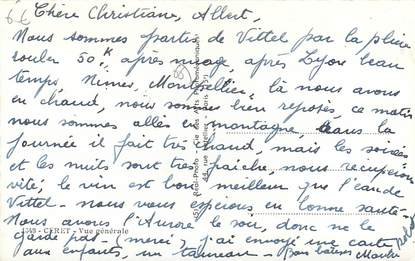 Chère Christiane, Albert,
Nous sommes partis de Vittel par la pluie
rouler 50 K après nuage, après Lyon beau
temps, Nimes, Montpellier, là nous avons
eu chaud, nous sommes bien reposés, ce matin
nous sommes allés en montagne, dans la
journée il fait très chaud, mais les soirées
et les nuits sont très fraiche, nous récupérons
vite, le vin est bon, meilleur que l'eau de
Vittel - nous vous espérons en bonne santé -
Nous avons l'Aurore le soir, donc ne
garde pas - (merci) j'ai envoyé une carte
aux enfants, un taureau - Bons baisers
CERET - Vue générale